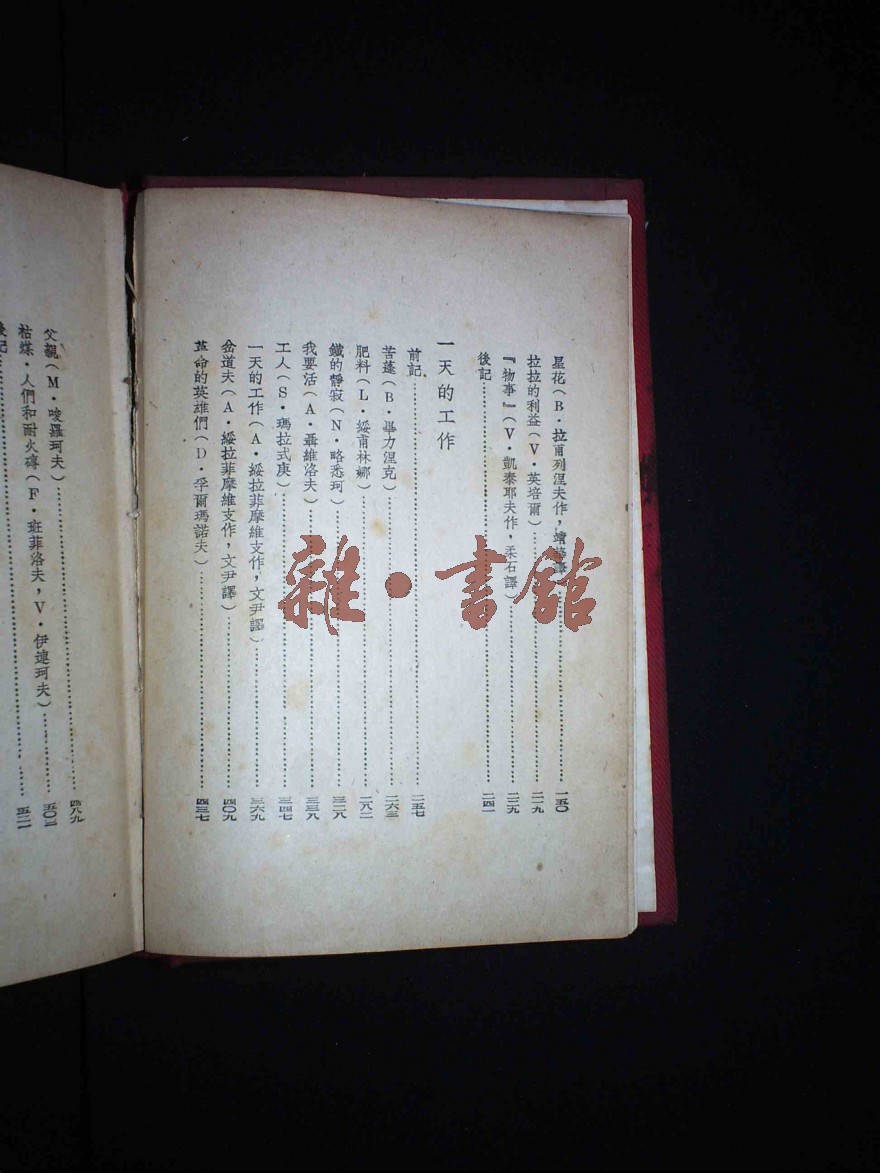 星花（B·拉甫列涅夫作，靖華譯）……一五〇
拉拉的利益（V·英培爾）……二一九
『物事』（V·凱泰耶夫作，柔石譯）……二二九
後記……二四一
一天的工作
前記……二五七
苦蓬（B·畢力涅克）……二六三
肥料（L·綏甫林娜）……二八二
鐵的靜寂（N·略悉珂）……三二八
我要活（A·聶維洛夫）……三三八
工人（S·瑪拉式庚）……三四七
一天的工作（A·綏拉菲摩維支作，文尹譯）……三六九
岔道夫（A·綏拉菲摩維支作，文尹譯）……四〇九
革命的英雄們（D·孚爾瑪諾夫）……四三七
父親（M·唆羅珂夫）……四八九
枯煤·人們和耐火磚（F·班菲洛夫，V·伊連珂夫）……五〇二
後記……五二一
雜·書館